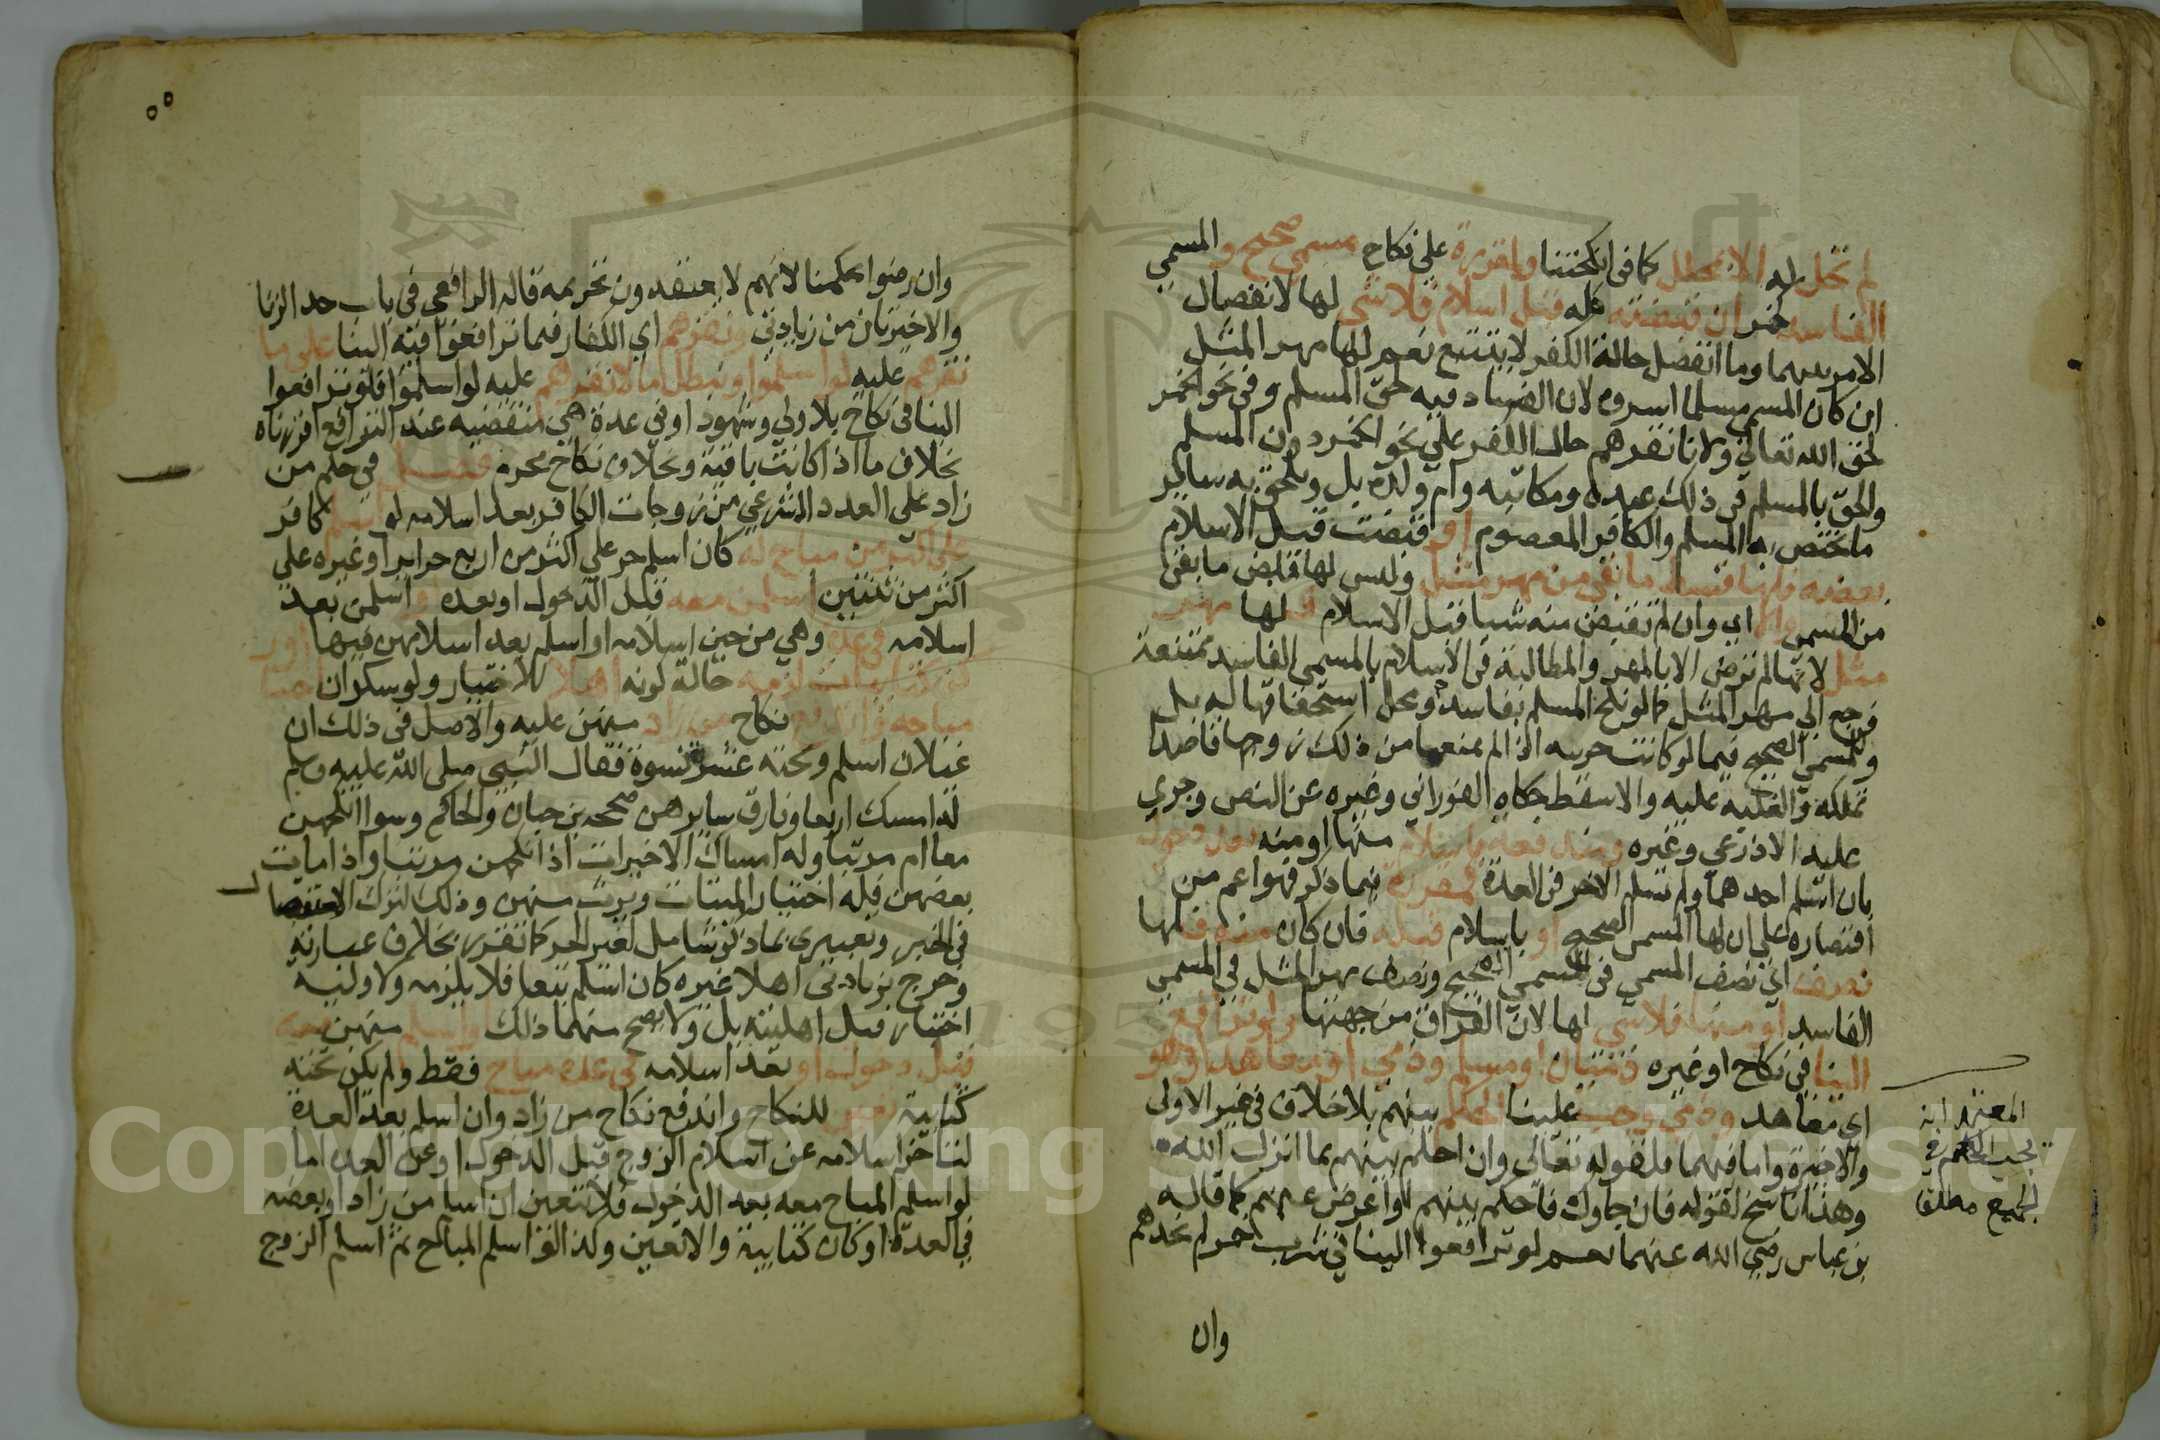 لم تحل له الا بمحلل كما في انكحتنا ولمقررة علي نكاح بمسمي صحيح والمسمي
الفاسد خمر ان قبضته كله قبل اسلام فلا شي لها لانفصال
الامر بينهما وما انفصل حالة الكفر لا يتتبع نعم لها مهر المثل
ان كان المسمي مسلما اسروه لان الفساد فيه لحق المسلم وفي نحو الخمر
لحق الله تعالي ولانا نقرهم حال الكفر علي نحو الخمر دون المسلم
والحق بالمسلم في ذلك عبده ومكاتبه وام ولده بل ويلحق به ساير
ما يختص به المسلم والكافر المعصوم او قبضت قبل الاسلام
بعضه فلها قسط ما بقي من مهر مثل وليس لها قبض ما بقي
من المسمي والا اي وان لم تقبض منه شيا قبل الاسلام فلها مهر
مثل لانها لم ترض الا بالمهر والمطالبة في الاسلام بالمسمي الفاسد ممتنعة
فرجع الي مهر المثل كما لو نكح المسلم بفاسد ومحل استحقاقها له بل
وللمسمي الصحيح فيما لو كانت حربية اذا لم يمنعها من ذلك زوجها قاصدا
تملكه والغلبة عليه والا سقط حكاه الفوراني وغيره عن النص وجري
عليه الاذرعي وغيره ومندفعة باسلام منها او منه بعد دخول
بان اسلم احدهما ولم يسلم الاخر في العدة كمقررة فيما ذكر فهو اعم من
اقتصاره علي ان لها المسمي الصحيح او باسلام قبله فان كان منه فلها
نصف اي نصف المسمي في المسمي الصحيح ونصف مهر المثل في المسمي
الفاسد او منها فلا شي لها لان الفراق من جهتها ولو ترافع
الينا في نكاح او غيره ذميان او مسلم وذمي او معاهد او هو
اي معاهد وذمي وجب علينا الحكم بينهم بلا خلاف في غير الاولي
والاخيرة واما فيهما فلقوله تعالي وان احكم بينهم بما انزل الله
وهذا ناسخ لقوله فان جاوك فاحكم بينهم او اعرض عنهم كما قاله
بن عباس رضي الله عنهما نعم لو ترافعوا الينا في شرب خمر لم نحدهم
المعتمد انه
يجب الحكم في
الجميع مطلقا
وان
وان رضوا بحكمنا لانهم لا يعتقدون تحريمه قاله الرافعي في باب حد الزنا
والاخيرتان من زيادتي ونقرهم اي الكفار فيما ترافعوا فيه الينا علي ما
نقرهم عليه لو اسلموا ونبطل ما لا نقرهم عليه لو اسلموا فلو ترافعوا
الينا في نكاح بلا ولي وشهود او في عدة هي منقضية عند الترافع اقررناه
بخلاف ما اذا كانت باقية وبخلاف نكاح محرم فصل في حكم من
زاد علي العدد الشرعي من زوجات الكافر بعد اسلامه لو اسلم كافر
علي اكثر من مباح له كان اسلم حر علي اكثر من اربع حراير او غيره علي
اكثر من ثنتين اسلمن معه قبل الدخول او بعده او اسلمن بعد
اسلامه في عدة وهي من حين اسلامه او اسلم بعد اسلامهن فيها او
كن كتابيات لزمه حالة كونه اهلا للاختيار ولو سكران اختيار
مباحه واندفع نكاح من زاد منهن عليه والاصل في ذلك ان
غيلان اسلم وتحته عشر نسوة فقال النبي صلي الله عليه وسلم
له امسك اربعا وفارق سايرهن صححه بن حبان والحاكم وسوا انكحهن
معا ام مرتبا وله امساك الاخيرات اذا نكحهن مرتبا واذا مات
بعضهن فله اختيار الميتات ويرث منهن وذلك لترك الاستفصال
في الخبر وتعبيري بما ذكر شامل لغير الحر كما تقرر بخلاف عبارته
وخرج بزيادتي اهلا غيره كان اسلم تبعا فلا يلزمه ولا وليه
اختيار قبل اهليته بل ولا يصح منهما ذلك او اسلم منهن معه
قبل دخول او بعد اسلامه في عدة مباح فقط ولم يكن تحته
كتابية تعين للنكاح واندفع نكاح من زاد وان اسلم بعد العدة
لتاخر اسلامه عن اسلام الزوج قبل الدخول او عن العدة اما
لو اسلم المباح معه بعد الدخول فلا تتعين ان اسلم من زاد او بعضه
في العدة او كان كتابية والا تعين وكذا لو اسلم المباح ثم اسلم الزوج
Copyright © King Saud University